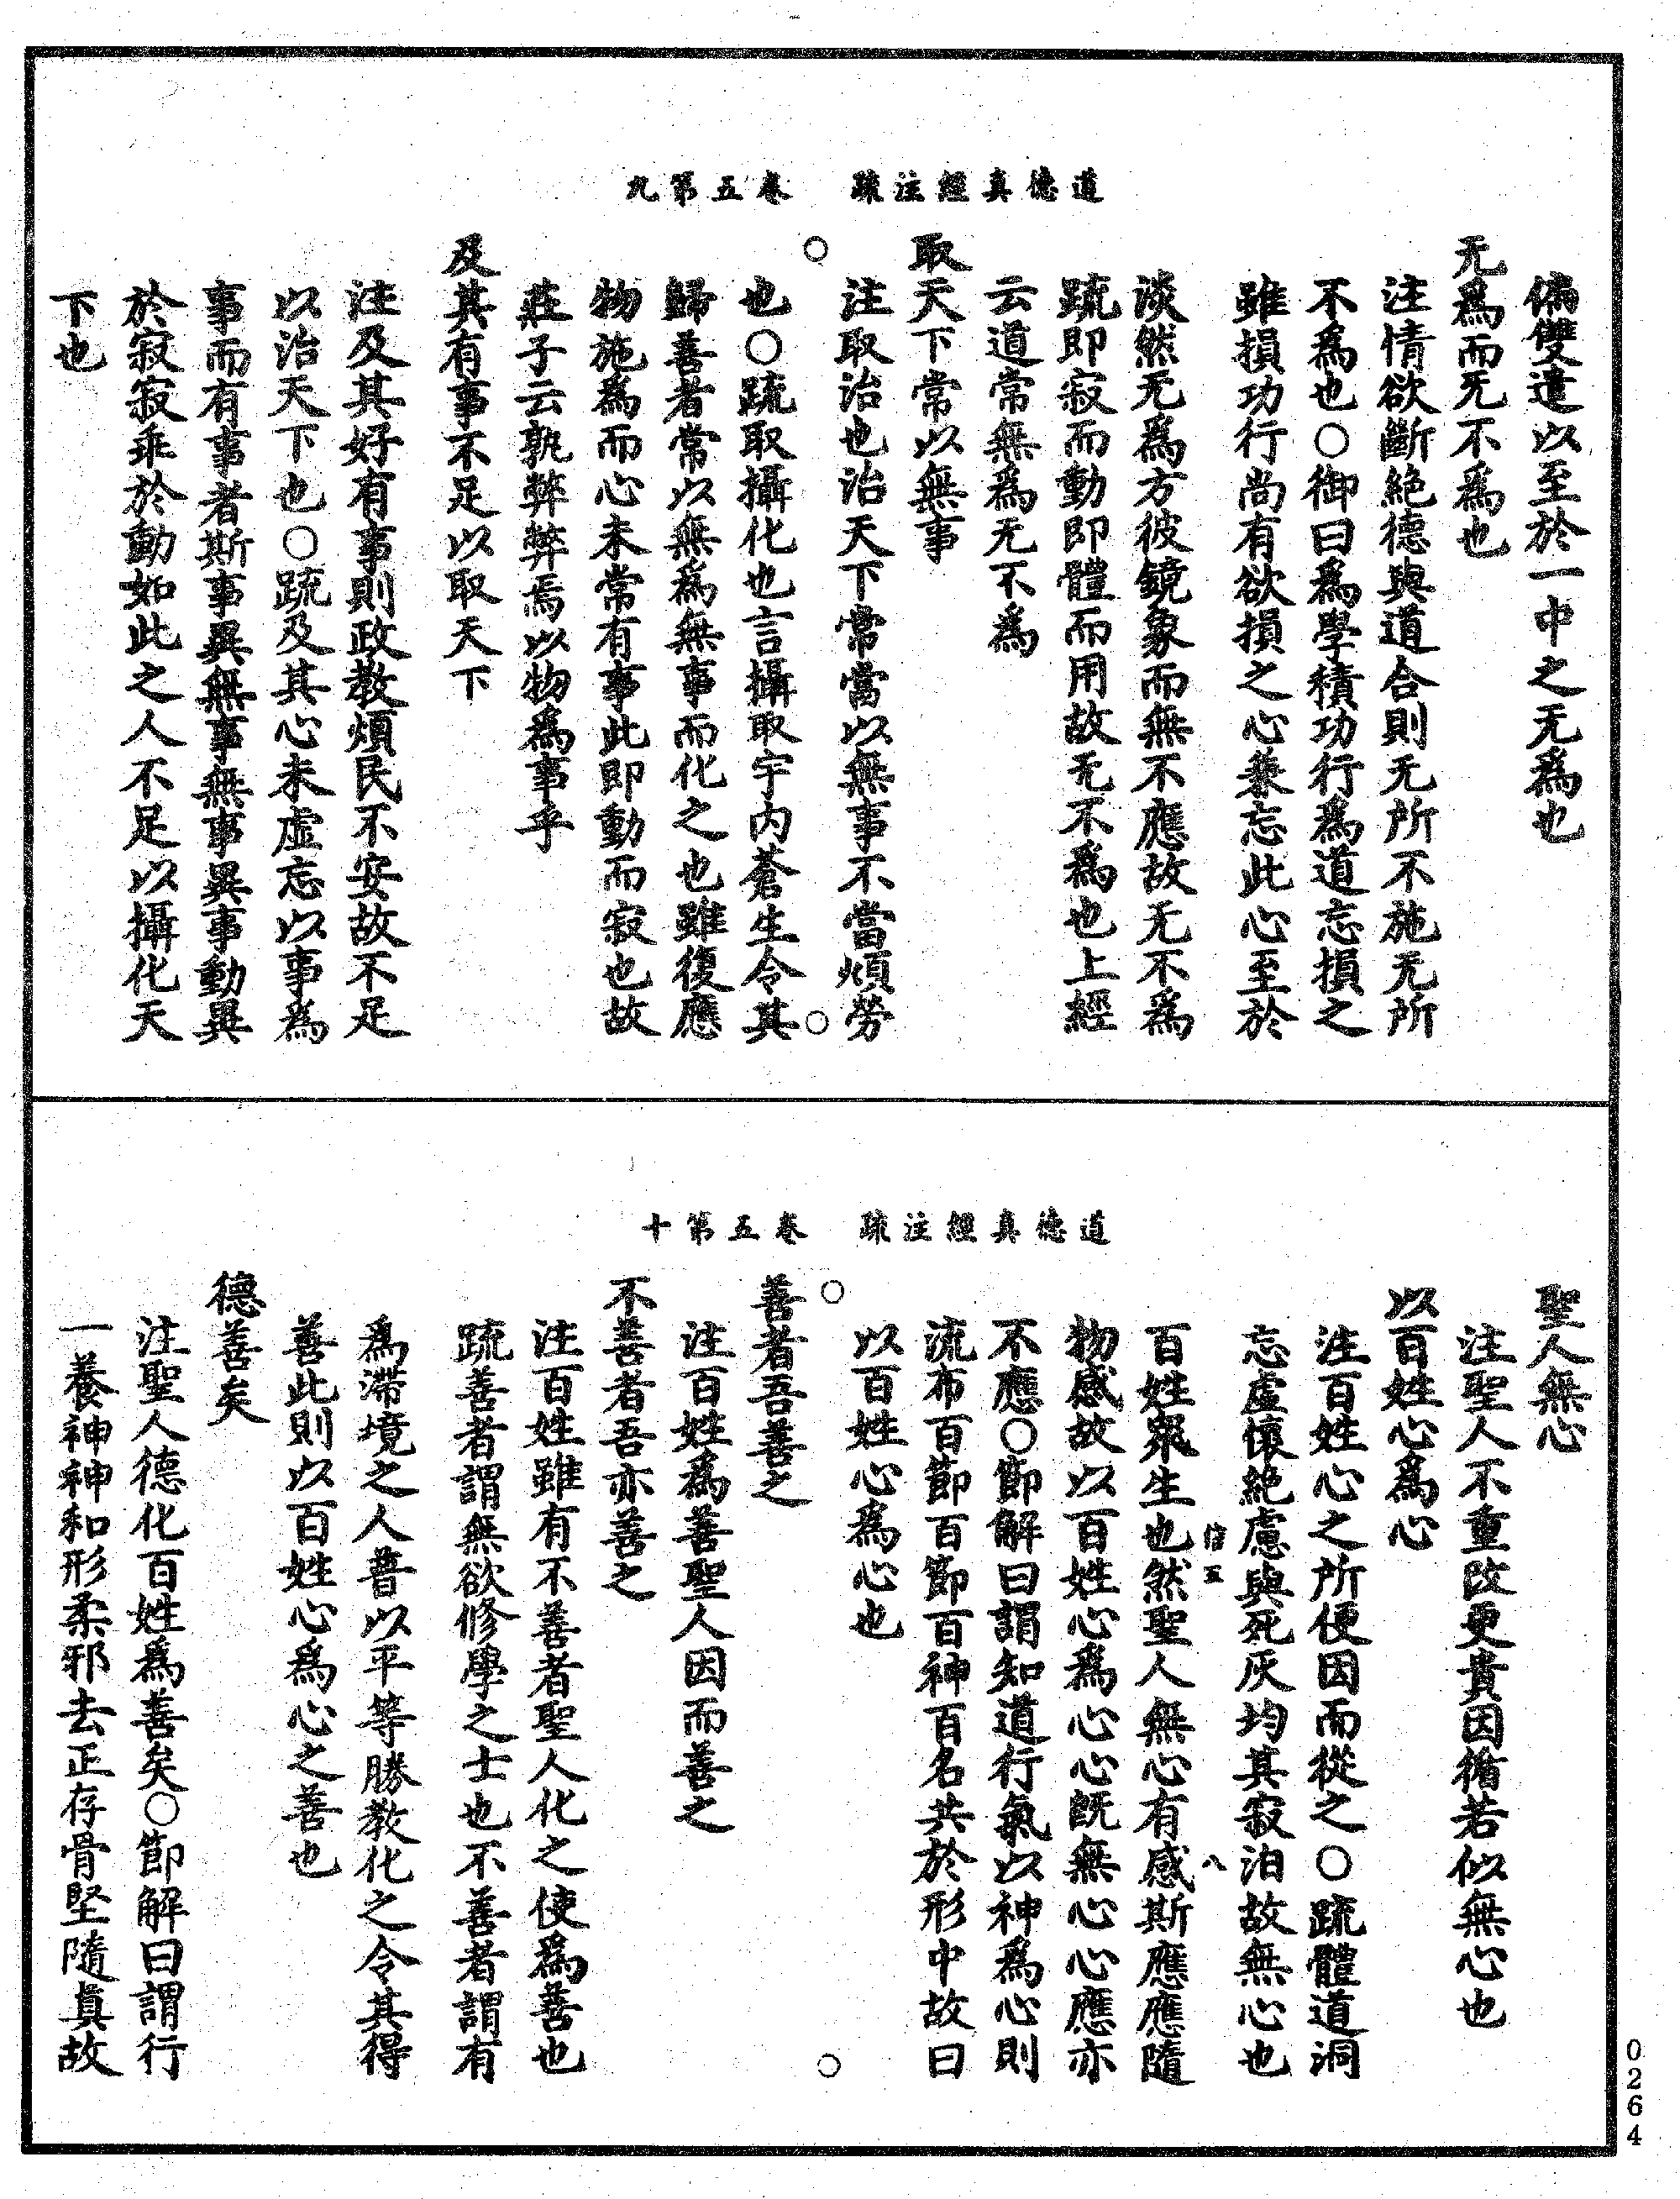 道德真經注疏　卷五第九
偏雙遣以至於一中之无爲也
无爲而无不爲也
注情欲斷絕德與道合則无所不施无所
不爲也○御曰爲學積功行爲道忘損之
雖損功行尚有欲損之心兼忘此心至於
淡然无爲方彼鏡象而無不應故无不爲
䟽即寂而動即體而用故无不爲也上經
云道常無爲无不爲
取天下常以無事
注取治也治天下常當以無事不當煩勞
○　○
也○䟽取攝化也言攝取宇内蒼生令其
歸善者常以無爲無事而化之也雖復應
物施爲而心未常有事此即動而寂也故
莊子云孰弊弊焉以物爲事乎
及其有事不足以取天下
注及其好有事則政教煩民不安故不足
以治天下也○䟽及其心未虛忘以事爲
事而有事者斯事異無事無事異事動異
於寂寂乖於動如此之人不足以攝化天
下也
道德真經注疏　卷五第十
聖人無心
注聖人不重改更貴因循若似無心也
以百姓心爲心
注百姓心之所便因而從之○䟽體道洞
忘虛懷絕慮與死灰均其寂泊故無心也
信五　八
百姓衆生也然聖人無心有感斯應應隨
物感故以百姓心爲心心既無心心應亦
不應○節解曰謂知道行氣以神爲心則
流布百節百節百神百名共於形中故曰
以百姓心爲心也
○　○
善者吾善之
注百姓爲善聖人因而善之
不善者吾亦善之
注百姓雖有不善者聖人化之使爲善也
䟽善者謂無欲修學之士也不善者謂有
爲滯境之人普以平等勝教化之令其得
善此則以百姓心爲心之善也
德善矣
注聖人德化百姓爲善矣○節解曰謂行
一養神神和形柔邪去正存骨堅隨真故
0264